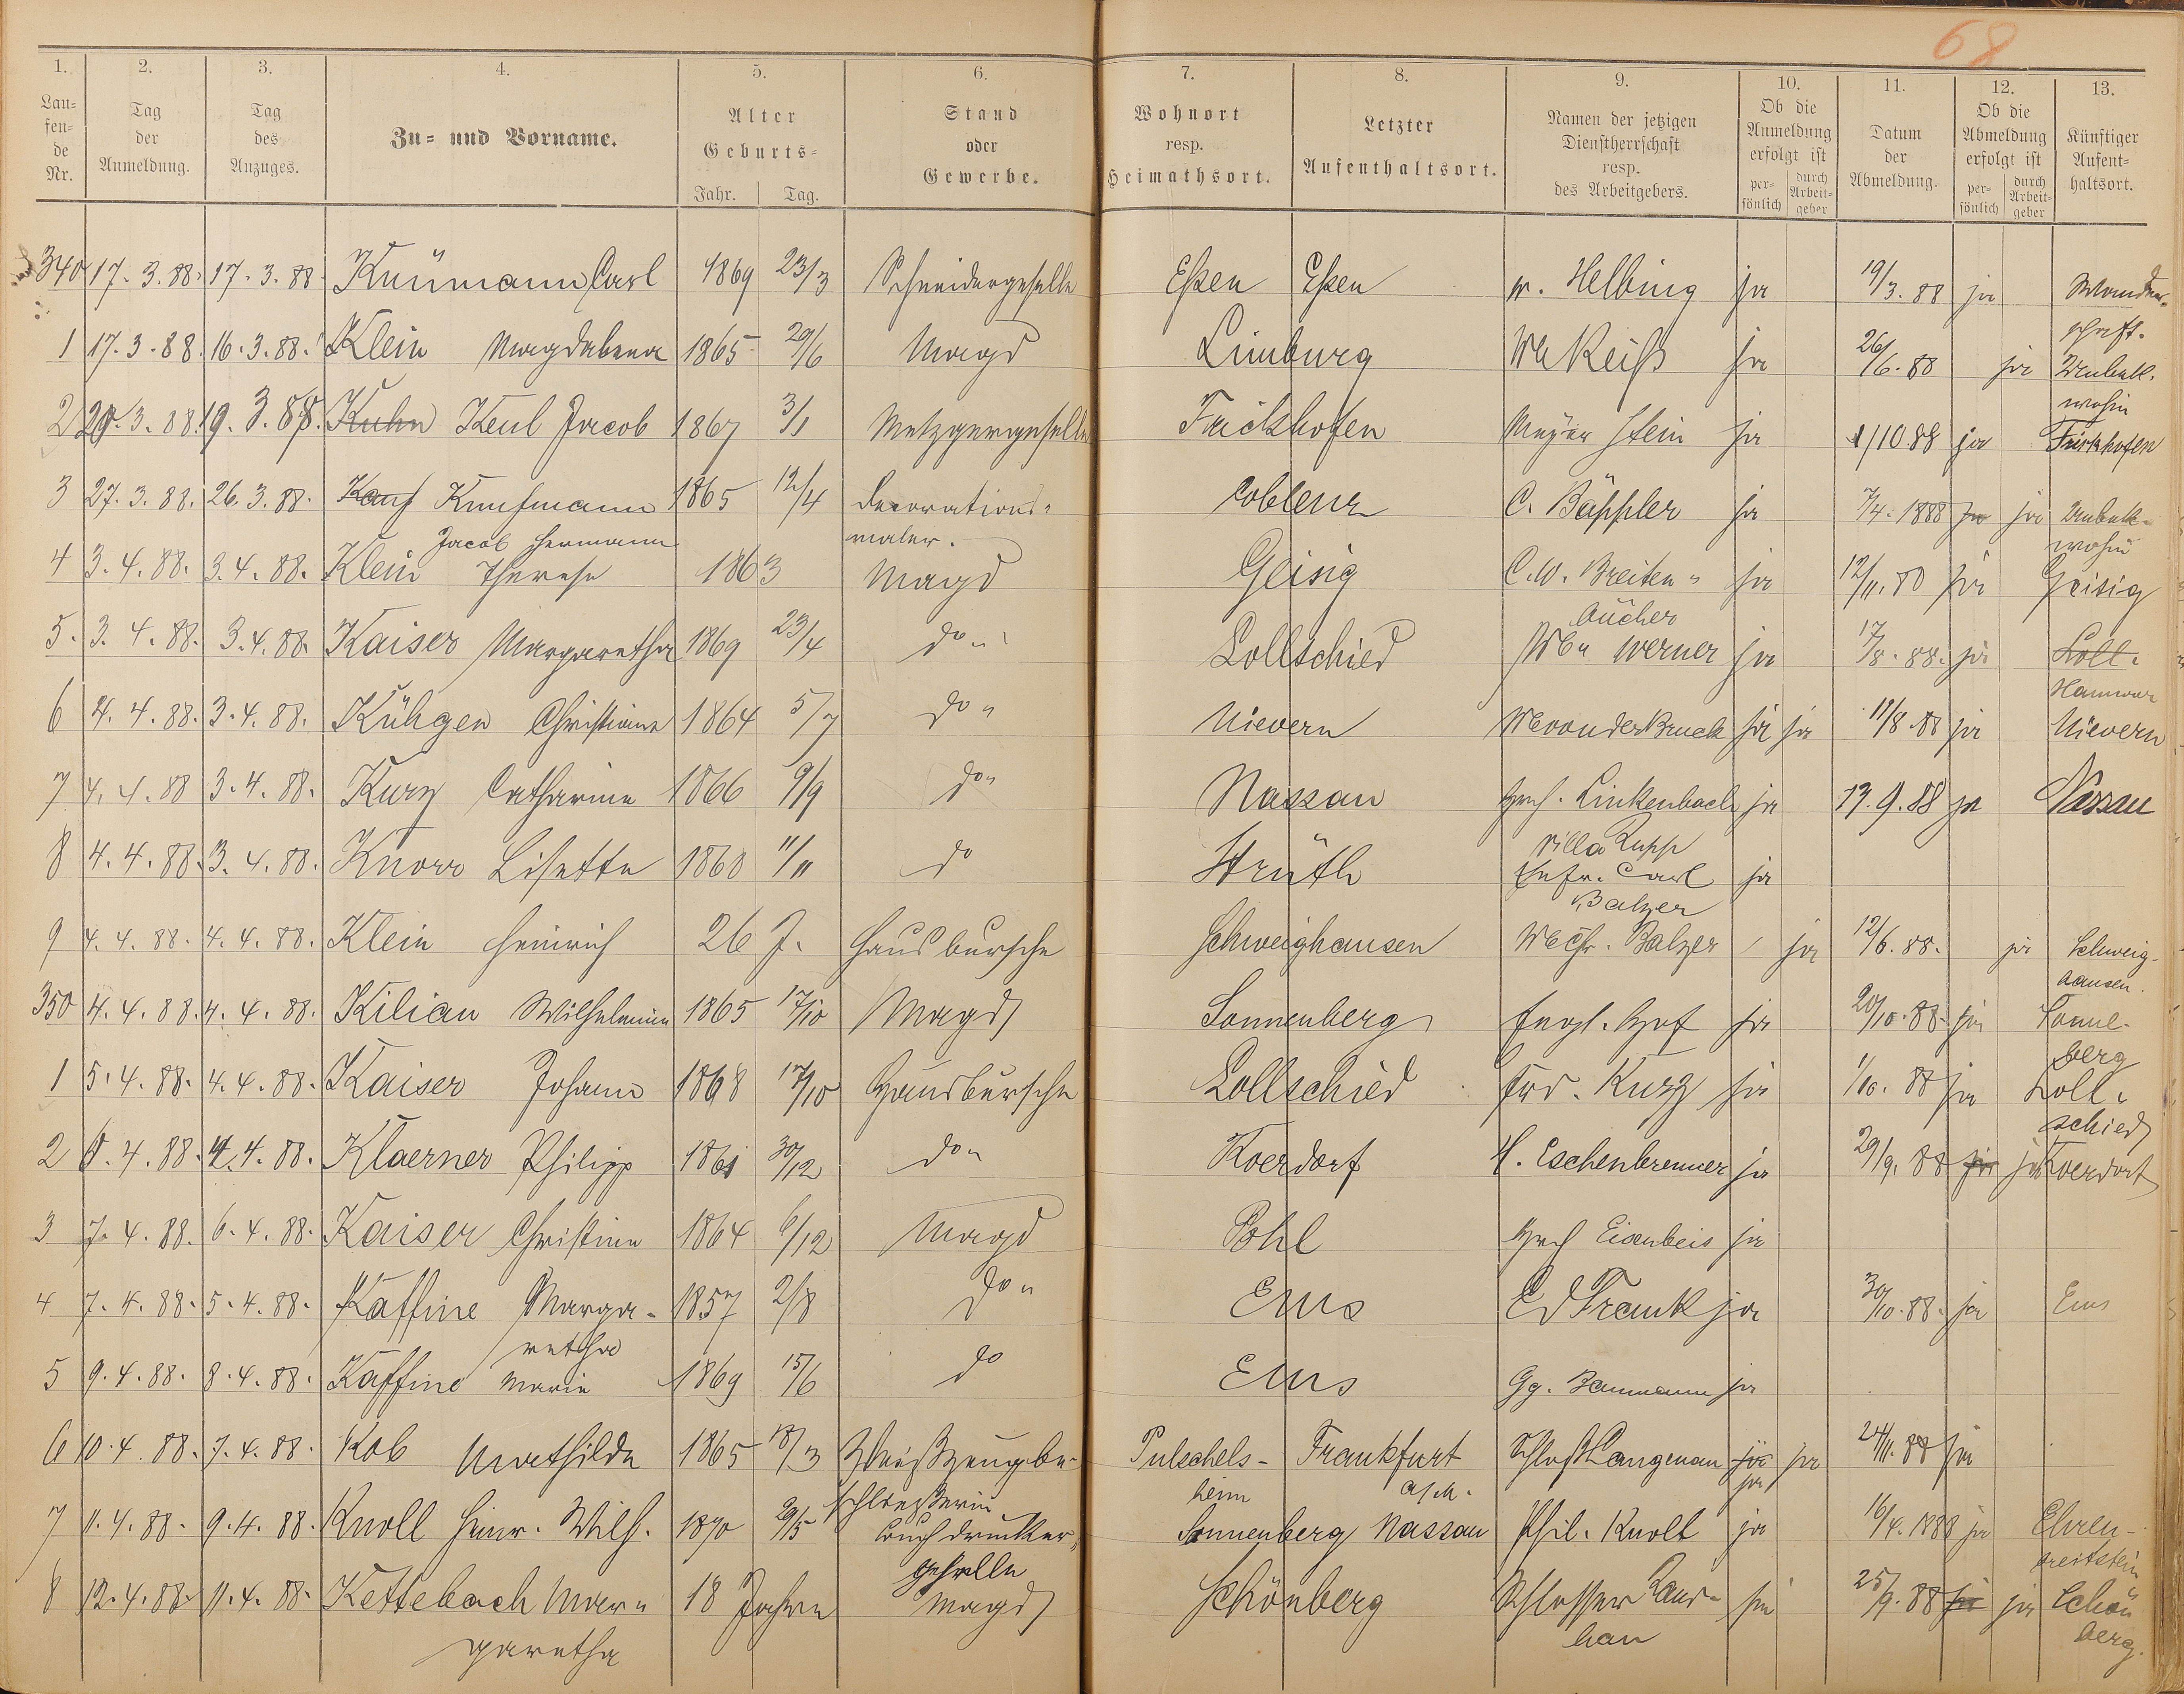 68
1. 2. 3. 4. 5. 6. 7. 8. 9. 10. 11. 12. 13.
Lau=
fen=
de
Nr.
Tag
der
Anmeldung.
Tag
des
Anzuges.
Zu= und Vorname.
Alter
Geburts=
Jahr. Tag.
Stand
oder
Gewerbe.
Wohnort
resp.
Heimathsort.
Letzter
Aufenthaltsort.
Namen der jetzigen
Dienstherrschaft
resp.
des Arbeitgebers.
Ob die
Anmeldung
erfolgt ist
per=
sönlich
durch
Arbeit=
geber
Datum
der
Abmeldung.
Ob die
Abmeldung
erfolgt ist
per=
sönlich
durch
Arbeit=
geber
Künftiger
Aufent=
haltsort.
340 17. 3. 88. 17. 3. 88 Carl 1869 23/3 Schneidergeselle Eßen Eßen W. Helbing ja 19/3. 88 ja Wander-
schaft.
1 17. 3. 88. 16. 3. 88. Klein Magdalena 1865 29/6 Magd Limburg We Reiß ja 26/6. 88 ja Unbek.
wohin
2 20. 3. 88. 19. 3. 88. Kuhn Keul Jacob 1867 3/1 Metzgergeselle Frickhofen Meyer Stein ja 1/10 88 ja Frickhofen
3 27. 3. 88. 26. 3. 88. Kauf Kaufmann 1865 12/4 Decorations- Coblenz C. Bäppler ja 7/4. 1888 ja ja Unbek-
Jacob Hermann maler. wohin
4 3. 4. 88. 3. 4. 88. Klein Therese 1863 Magd Geisig C. W. Breiten- ja 12/11. 88 ja Geisig
bücher
5. 3. 4. 88. 3. 4. 88. Kaiser Margaretha 1869 23/4 do Lollschied We Werner ja 17/8. 88. ja Loll-
6 4. 4. 88. 3. 4. 88. Kühgen Christiane 1864 5/7 do Nievern We von der Bruck ja ja 11/8. 88 ja Nievern
7 4. 4. 88 3. 4. 88. Kurz Catharine 1866 9/9 do Nassau Hch. Linkenbach ja 13. 9. 88 ja Nassau
Villa Rupp
8 4. 4. 88. 3. 4. 88. Knorr Lisette 1868 11/11 do Strüth Carl ja
Balzer
9 4. 4. 88. 4. 4. 88. Klein Heinrich 26 J. Hausbursche Schweighausen We Chr. Balzer ja 12/6. 88. ja Schweig-
hausen.
350 4. 4. 88. 4. 4. 88. Kilian Wilhelmine 1865 17/10 Magd Sonnenberg Engl. Hof ja 20/10. 88. ja Sonne-
berg
1 5. 4. 88. 4. 4. 88. Kaiser Johann 1868 17/10 Hausbursche Lollschied Frd. Kurz ja 1/10. 88 ja Loll-
schied
2 6. 4. 88. 4. 4. 88. Klaerner Philipp 1861 30/12 do Koerdorf H. Eschenbrenner ja 29/9. 88 ja ja Koerdorf
3 7. 4. 88. 6. 4. 88. Kaiser Christine 1864 6/12 Magd Pohl Hch Eisenbeis ja
4 7. 4. 88. 5. 4. 88. Kaffine Marga- 1857 2/8 do Ems Ed Frank ja 30/10. 88. ja Ems
retha
5 9. 4. 88. 8. 4. 88. Kaffine Marie 1869 15/6 do Ems Gg. Baumann ja
6 10. 4. 88. 7. 4. 88. Kob Mathilde 1865 18/3 Weißzeugbe- Frankfurt Schloß Langenau ja ja 24/11. 88 ja
schließerin heim a/M. ja
7 11. 4. 88. 9. 4. 88. Knoll Heinr. Wilh. 1870 29/5 Buchdrucker- Sonnenberg Nassau Phil. Knoll ja 16/4. 1888 ja Ehren-
gehülfe breitstein
8 12. 4. 88. 11. 4. 88. Kettebach Mar- 18 Jahre Magd Schönberg Schlosser Lau- ja 25/9. 88 ja ja Schön
garetha berg.